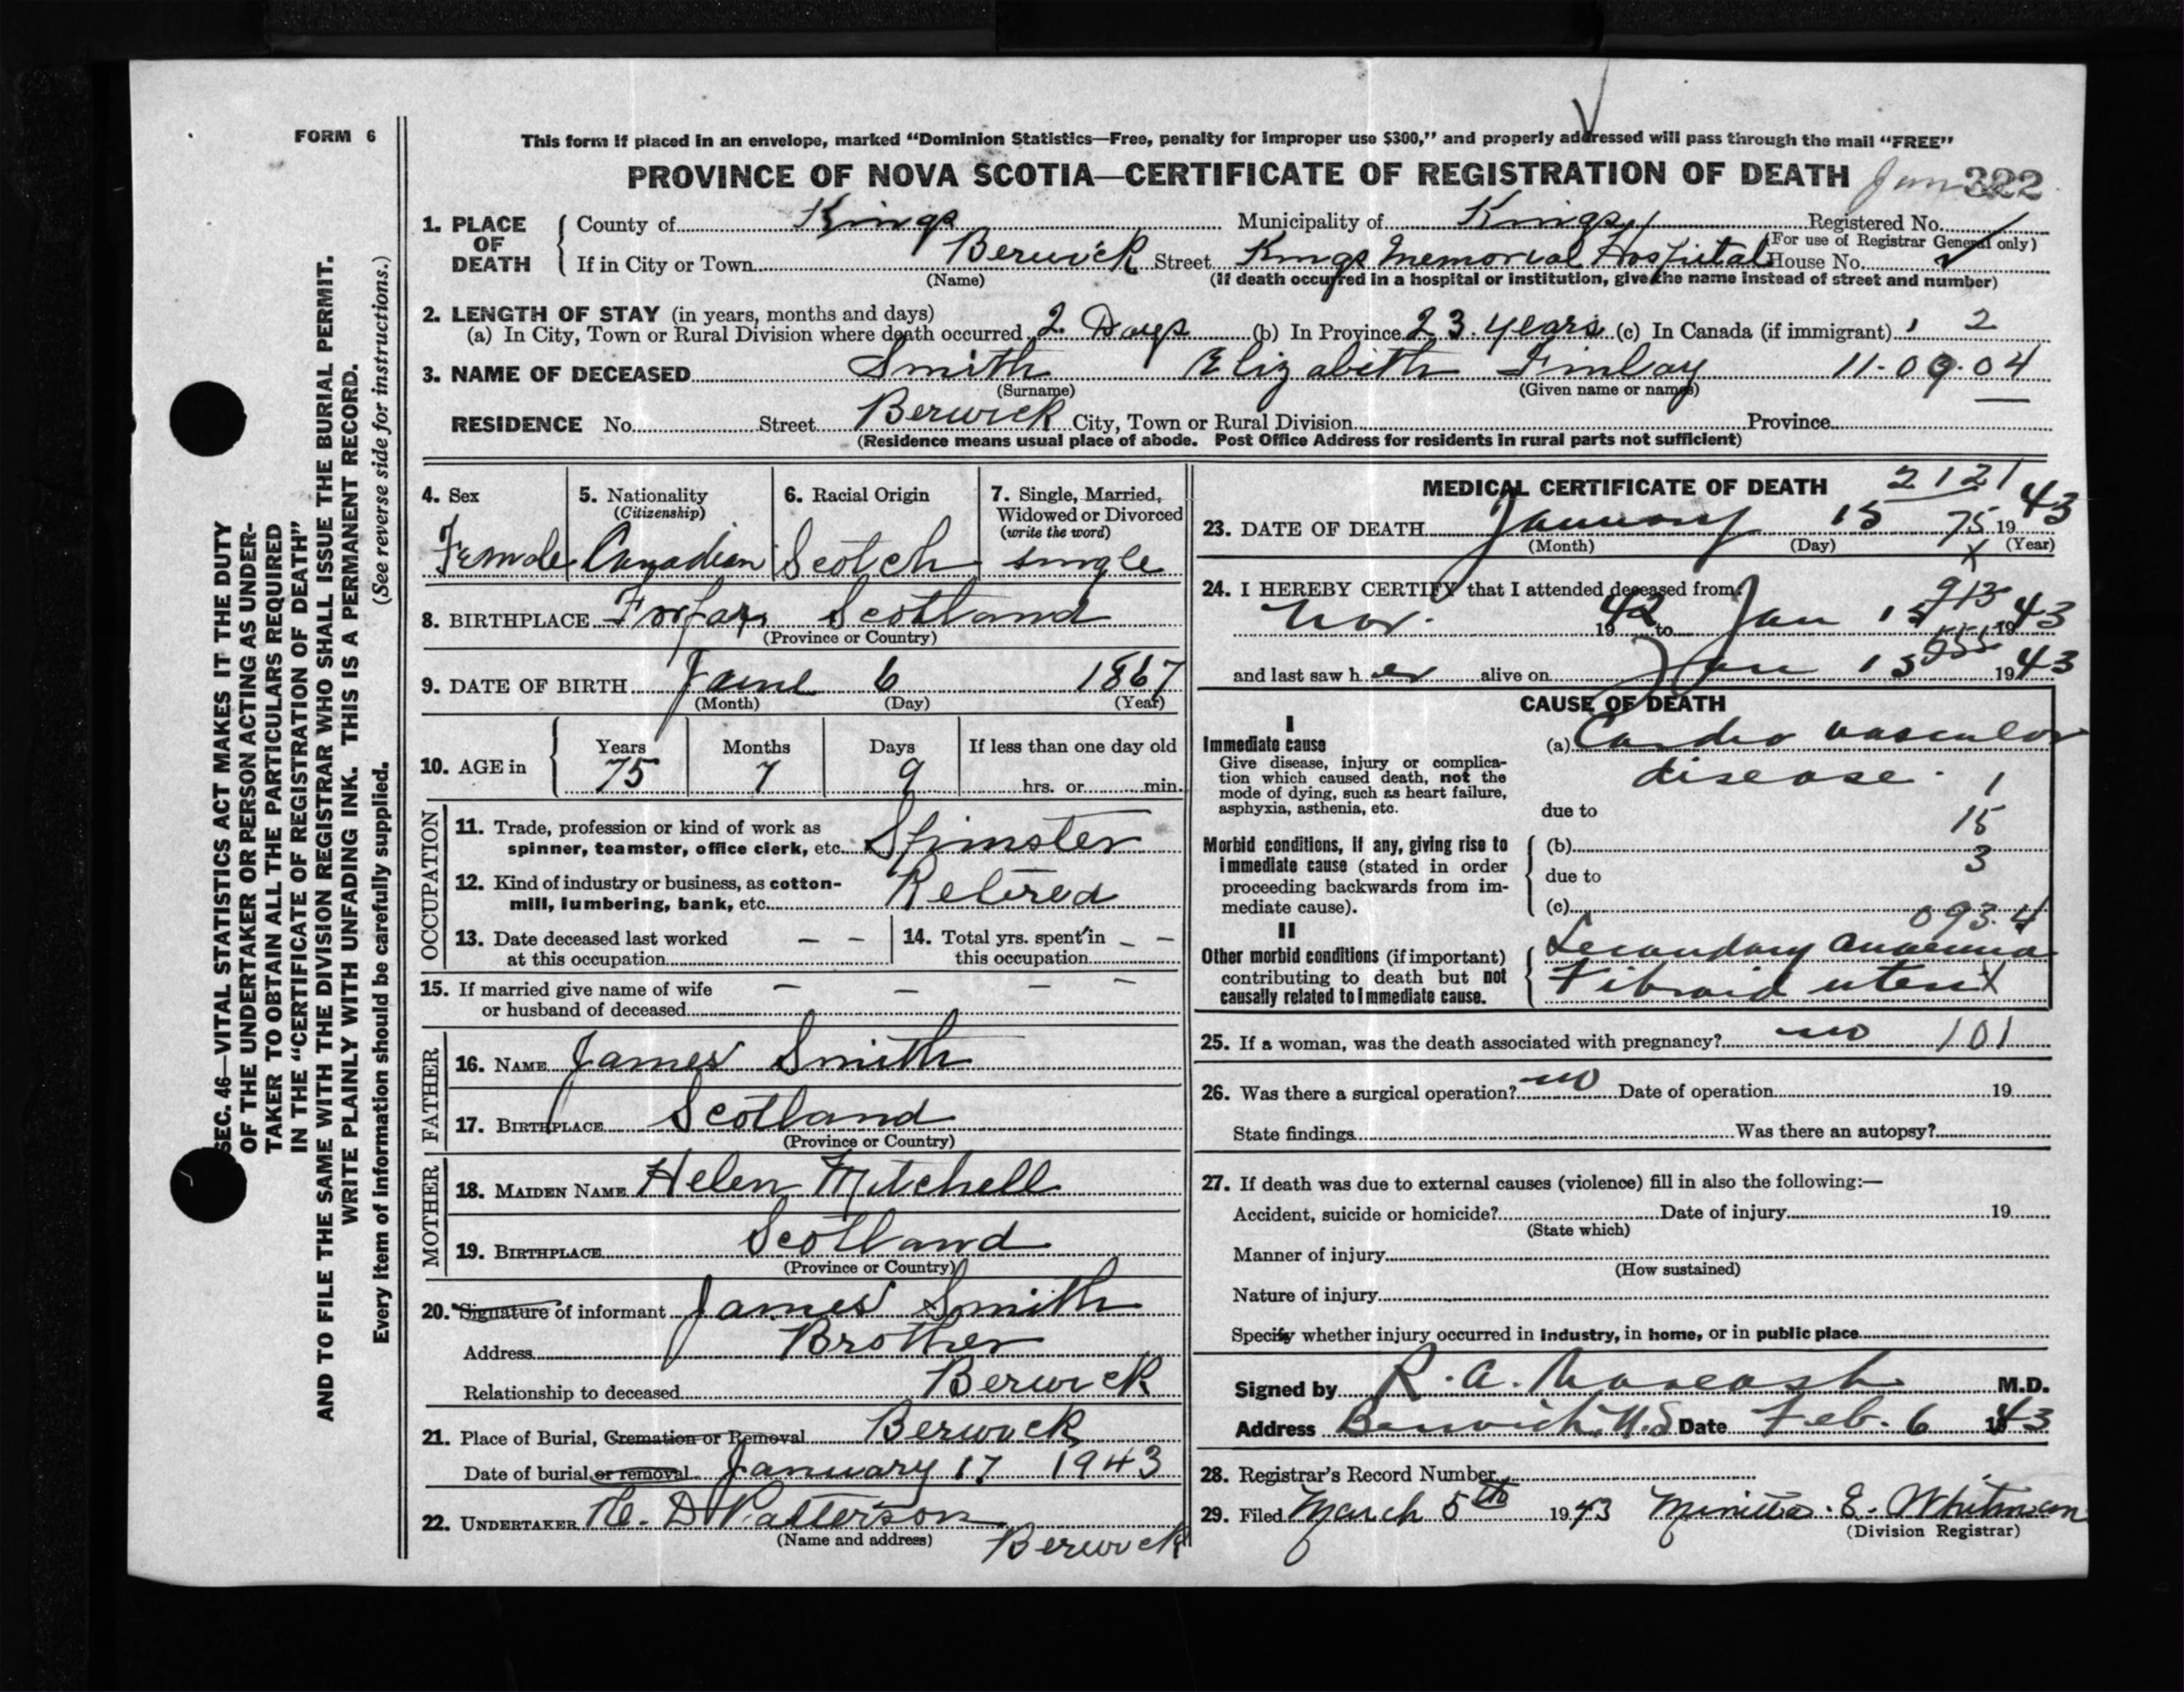 FORM 6
This form if placed in an envelope, marked “Dominion Statistics—Free, penalty for improper use $300,” and properly addressed will pass through the mail “FREE”
PROVINCE OF NOVA SCOTIA—CERTIFICATE OF REGISTRATION OF DEATH Jan 322
1. PLACE OF DEATH County of Kings Municipality of Kings Registered No.
(For use of Registrar General only)
If in City or Town Berwick Street Kings Memorial Hospital House No.
(Name) (If death occurred in a hospital or institution, give the name instead of street and number)
2. LENGTH OF STAY (in years, months and days)
(a) In City, Town or Rural Division where death occurred 2 Days (b) In Province 23 years (c) In Canada (if immigrant) 1 2
3. NAME OF DECEASED Smith Elizabeth Finlay 11-09-04
(Surname) (Given name or names)
RESIDENCE No. Street Berwick City, Town or Rural Division Province
(Residence means usual place of abode. Post Office Address for residents in rural parts not sufficient)
4. Sex Female
5. Nationality (Citizenship) Canadian
6. Racial Origin Scotch
7. Single, Married, Widowed or Divorced (write the word) single
8. BIRTHPLACE Forfar Scotland
(Province or Country)
9. DATE OF BIRTH June 6 1867
(Month) (Day) (Year)
10. AGE in Years Months Days If less than one day old
75 7 9 hrs. or min.
OCCUPATION
11. Trade, profession or kind of work as
spinner, teamster, office clerk, etc. Spinster
12. Kind of industry or business, as cotton-
mill, lumbering, bank, etc. Retired
13. Date deceased last worked at this occupation — —
14. Total yrs. spent in this occupation — —
15. If married give name of wife — — — —
or husband of deceased
FATHER
16. NAME James Smith
17. BIRTHPLACE Scotland
(Province or Country)
MOTHER
18. MAIDEN NAME Helen Mitchell
19. BIRTHPLACE Scotland
(Province or Country)
20. Signature of informant James Smith
Address Brother
Relationship to deceased Berwick
21. Place of Burial, Cremation or Removal Berwick
Date of burial or removal January 17 1943
22. UNDERTAKER D Patterson
(Name and address) Berwick
MEDICAL CERTIFICATE OF DEATH 2121
23. DATE OF DEATH January 15 75 1943
(Month) (Day) (Year)
24. I HEREBY CERTIFY that I attended deceased from
Nov. 1942 to Jan 15 1943
and last saw her alive on Jan 15 1943
CAUSE OF DEATH
I
Immediate cause (a) Cardio vascular
Give disease, injury or complica-
tion which caused death, not the
mode of dying, such as heart failure,
asphyxia, asthenia, etc.
disease. 1
due to
15
Morbid conditions, if any, giving rise to (b)
immediate cause (stated in order due to 3
proceeding backwards from im-
mediate cause). (c)
093.4
II
Other morbid conditions (if important) Secondary Anaemia
contributing to death but not
causally related to immediate cause. Fibroid uteri
25. If a woman, was the death associated with pregnancy? no 101
26. Was there a surgical operation? no Date of operation 19
State findings Was there an autopsy?
27. If death was due to external causes (violence) fill in also the following:—
Accident, suicide or homicide? Date of injury 19
(State which)
Manner of injury
(How sustained)
Nature of injury
Specify whether injury occurred in industry, in home, or in public place
Signed by R. A. M.D.
Address Berwick. N.S Date Feb. 6 1943
28. Registrar's Record Number
29. Filed March 5th 1943 E. Whitman
(Division Registrar)
SEC. 46—VITAL STATISTICS ACT MAKES IT THE DUTY
OF THE UNDERTAKER OR PERSON ACTING AS UNDER-
TAKER TO OBTAIN ALL THE PARTICULARS REQUIRED
IN THE “CERTIFICATE OF REGISTRATION OF DEATH”
AND TO FILE THE SAME WITH THE DIVISION REGISTRAR WHO SHALL ISSUE THE BURIAL PERMIT.
WRITE PLAINLY WITH UNFADING INK. THIS IS A PERMANENT RECORD.
Every item of information should be carefully supplied. (See reverse side for instructions.)